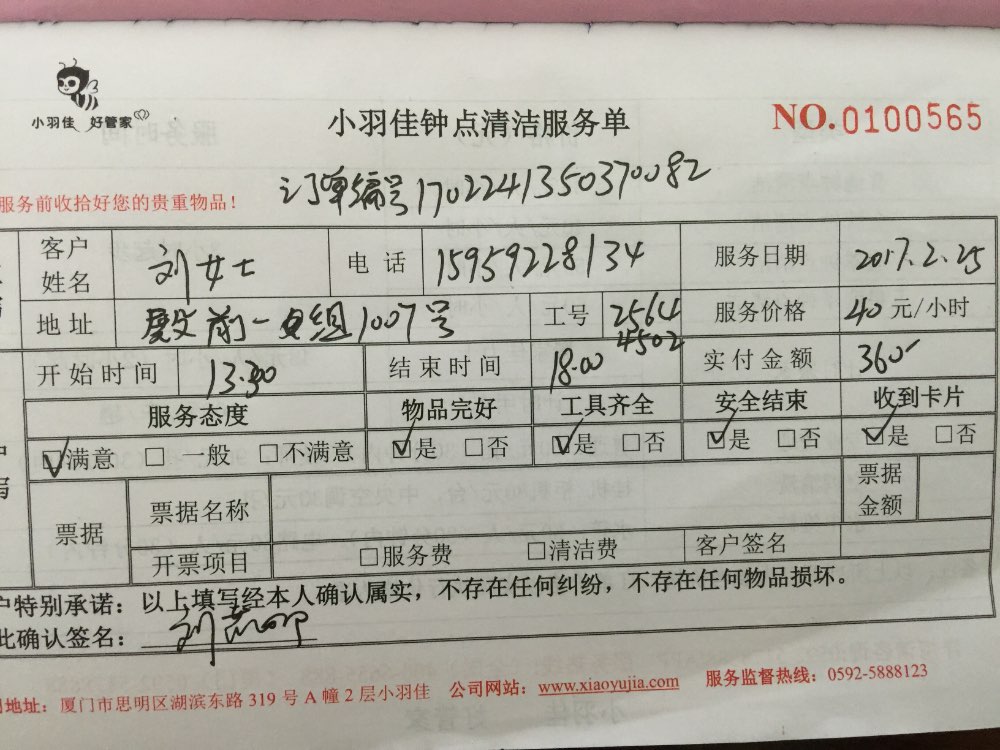 小羽佳 好管家
小羽佳钟点清洁服务单
NO.0100565
订单编号1702241350370082
服务前收拾好您的贵重物品!
客户姓名 刘女士 电话 15959228134 服务日期 2017.2.25
地址 殿前一组1007号 工号 2564 4502 服务价格 40元/小时
开始时间 13.30 结束时间 18.00 实付金额 360
服务态度 物品完好 工具齐全 安全结束 收到卡片
☑满意 □一般 □不满意 ☑是 □否 ☑是 □否 ☑是 □否 ☑是 □否
票据 票据名称 票据金额
开票项目 □服务费 □清洁费 客户签名
户特别承诺:以上填写经本人确认属实,不存在任何纠纷,不存在任何物品损坏。
此确认签名:刘
地址:厦门市思明区湖滨东路319号A幢2层小羽佳 公司网站:www.xiaoyujia.com 服务监督热线:0592-5888123